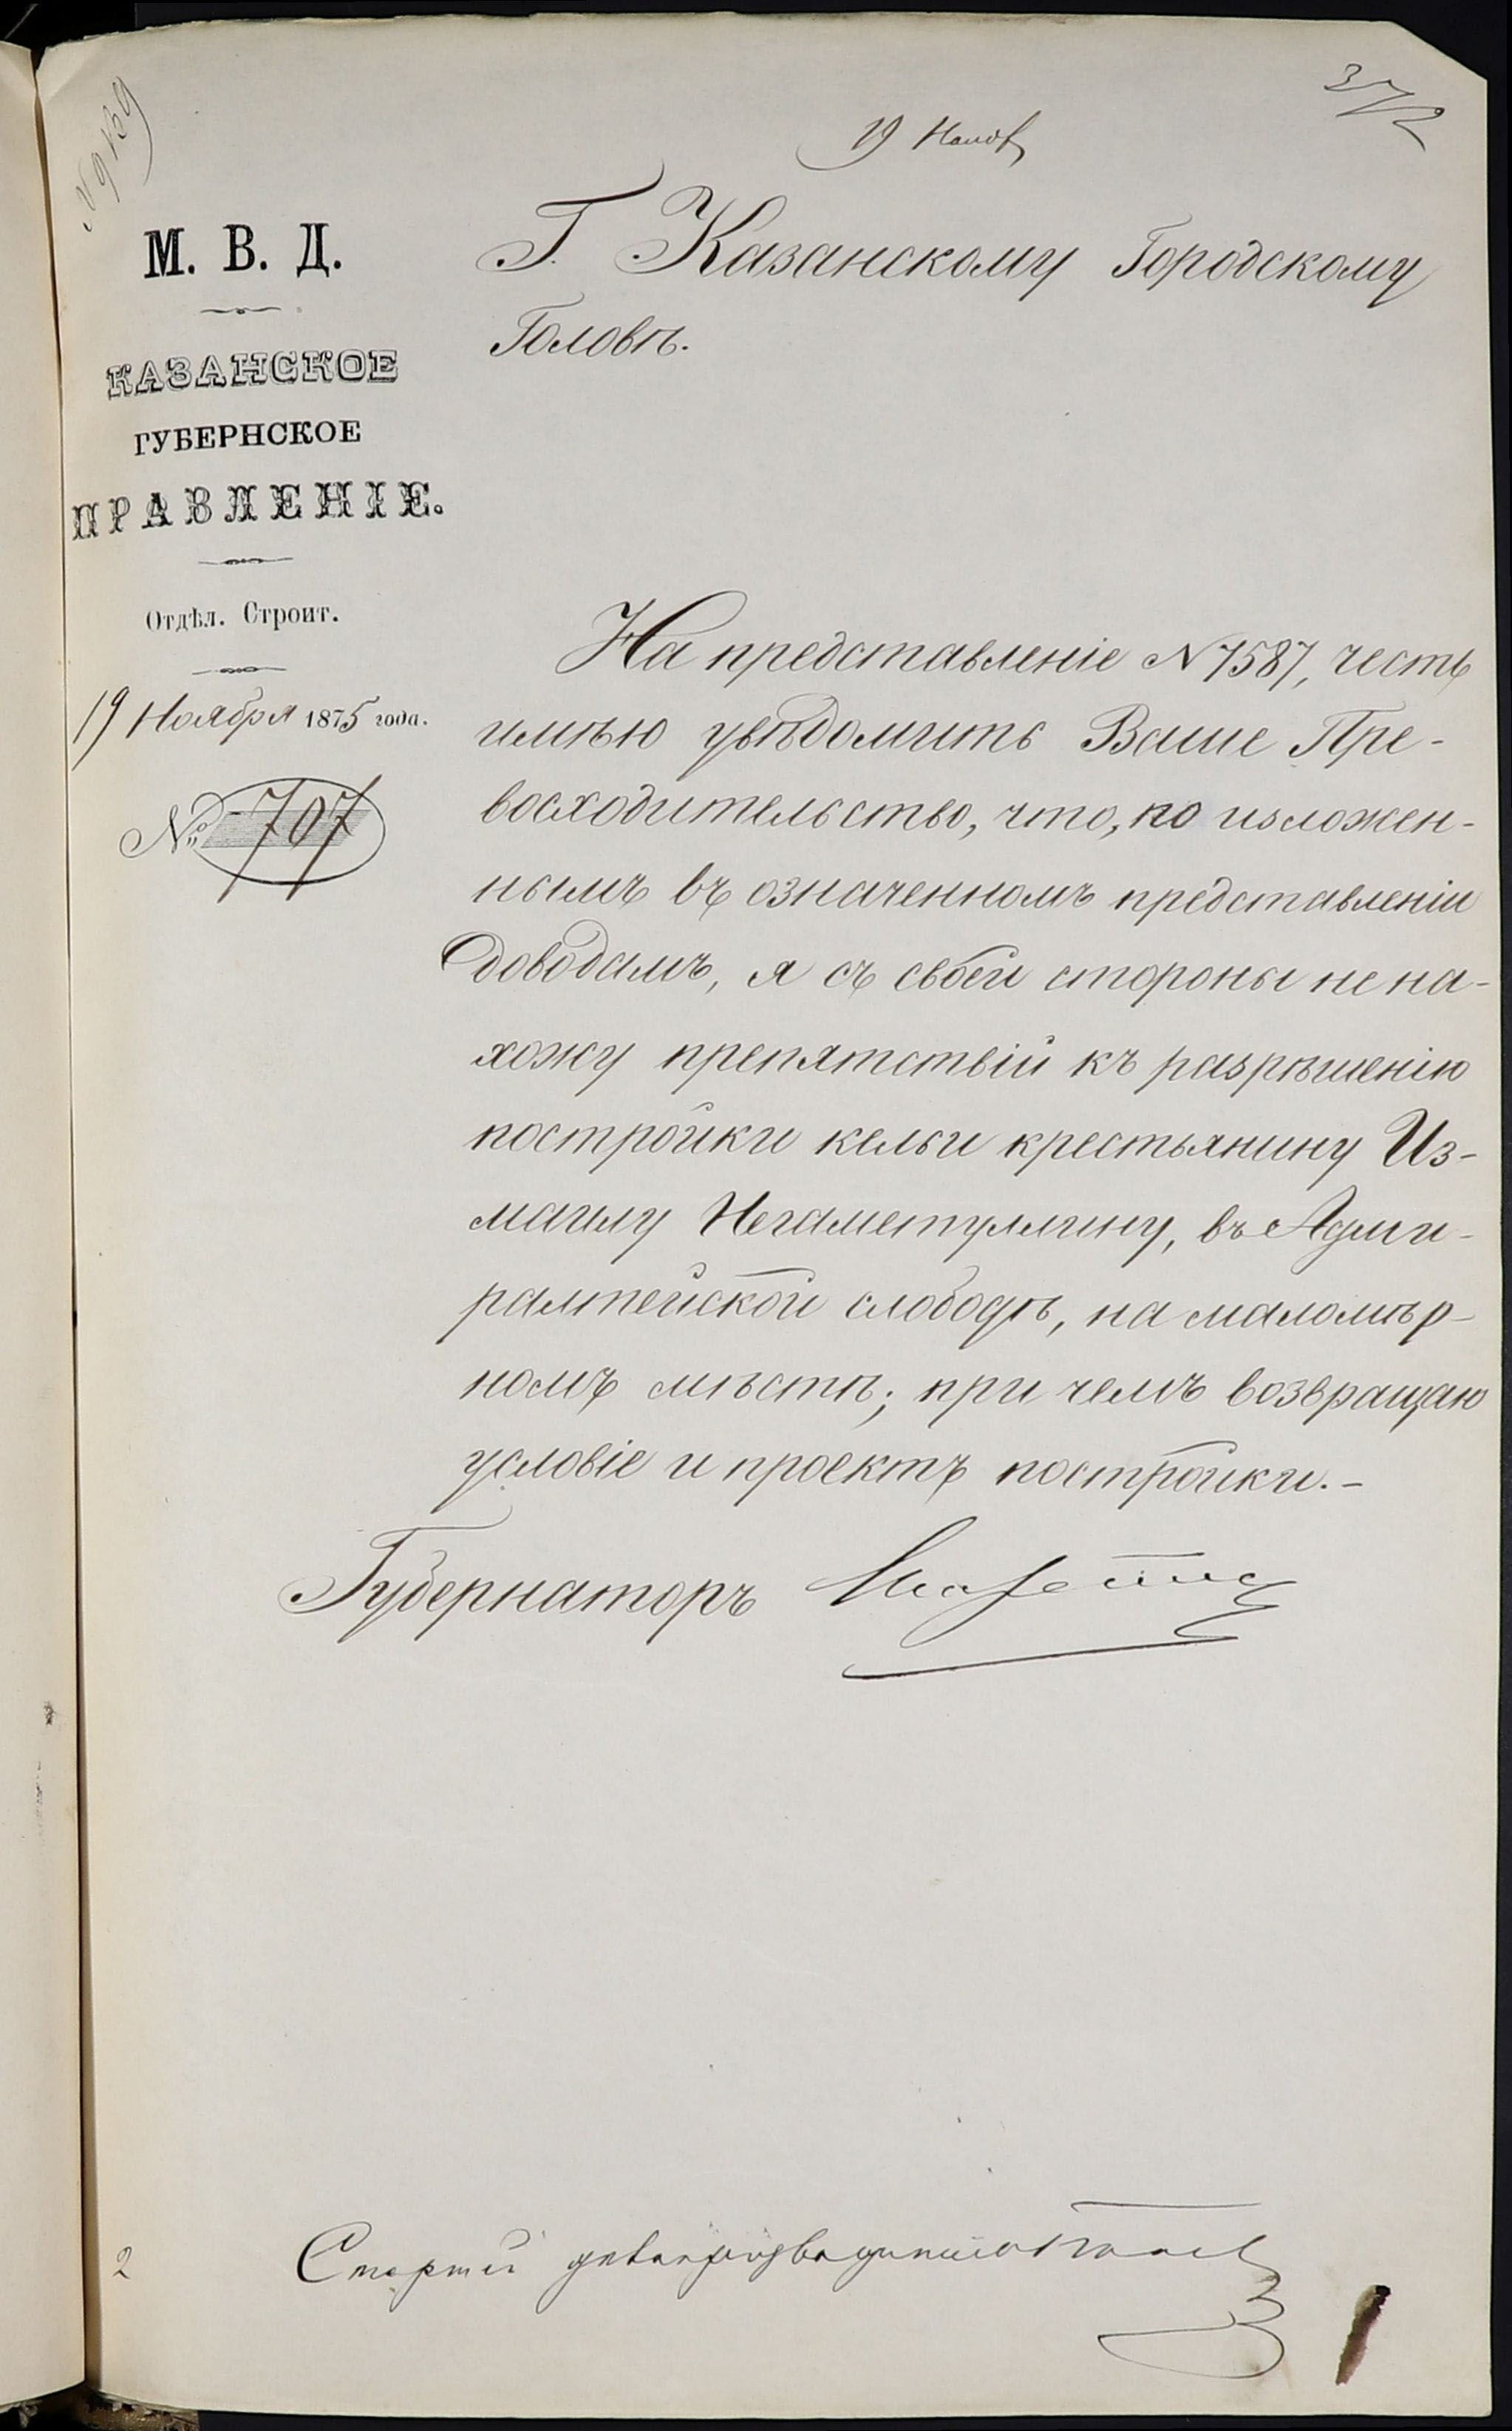 № 9139
372
19 Нояб
М. В. Д.
КАЗАНСКОЕ
ГУБЕРНСКОЕ
ПРАВЛЕНІЕ.
Отдѣл. Строит.
19 Ноября 1875 года.
№ 707
Г. Казанскому Городскому
Головѣ.
На представленіе N 7587, честь
имѣю увѣдомить Ваше Пре-
восходительство, что, по изложен-
нымъ въ означенномъ представленіи
доводамъ, я съ своей стороны не на-
хожу препятствій къ разрѣшенію
постройки кельи крестьянину Из-
маилу Негаметуллину, въ Адми-
ралтейской слободѣ, на маломѣр-
номъ мѣстѣ; при чемъ возвращаю
условіе и проектъ постройки.-
Губернаторъ
Старшій дѣлопроизводитель
2